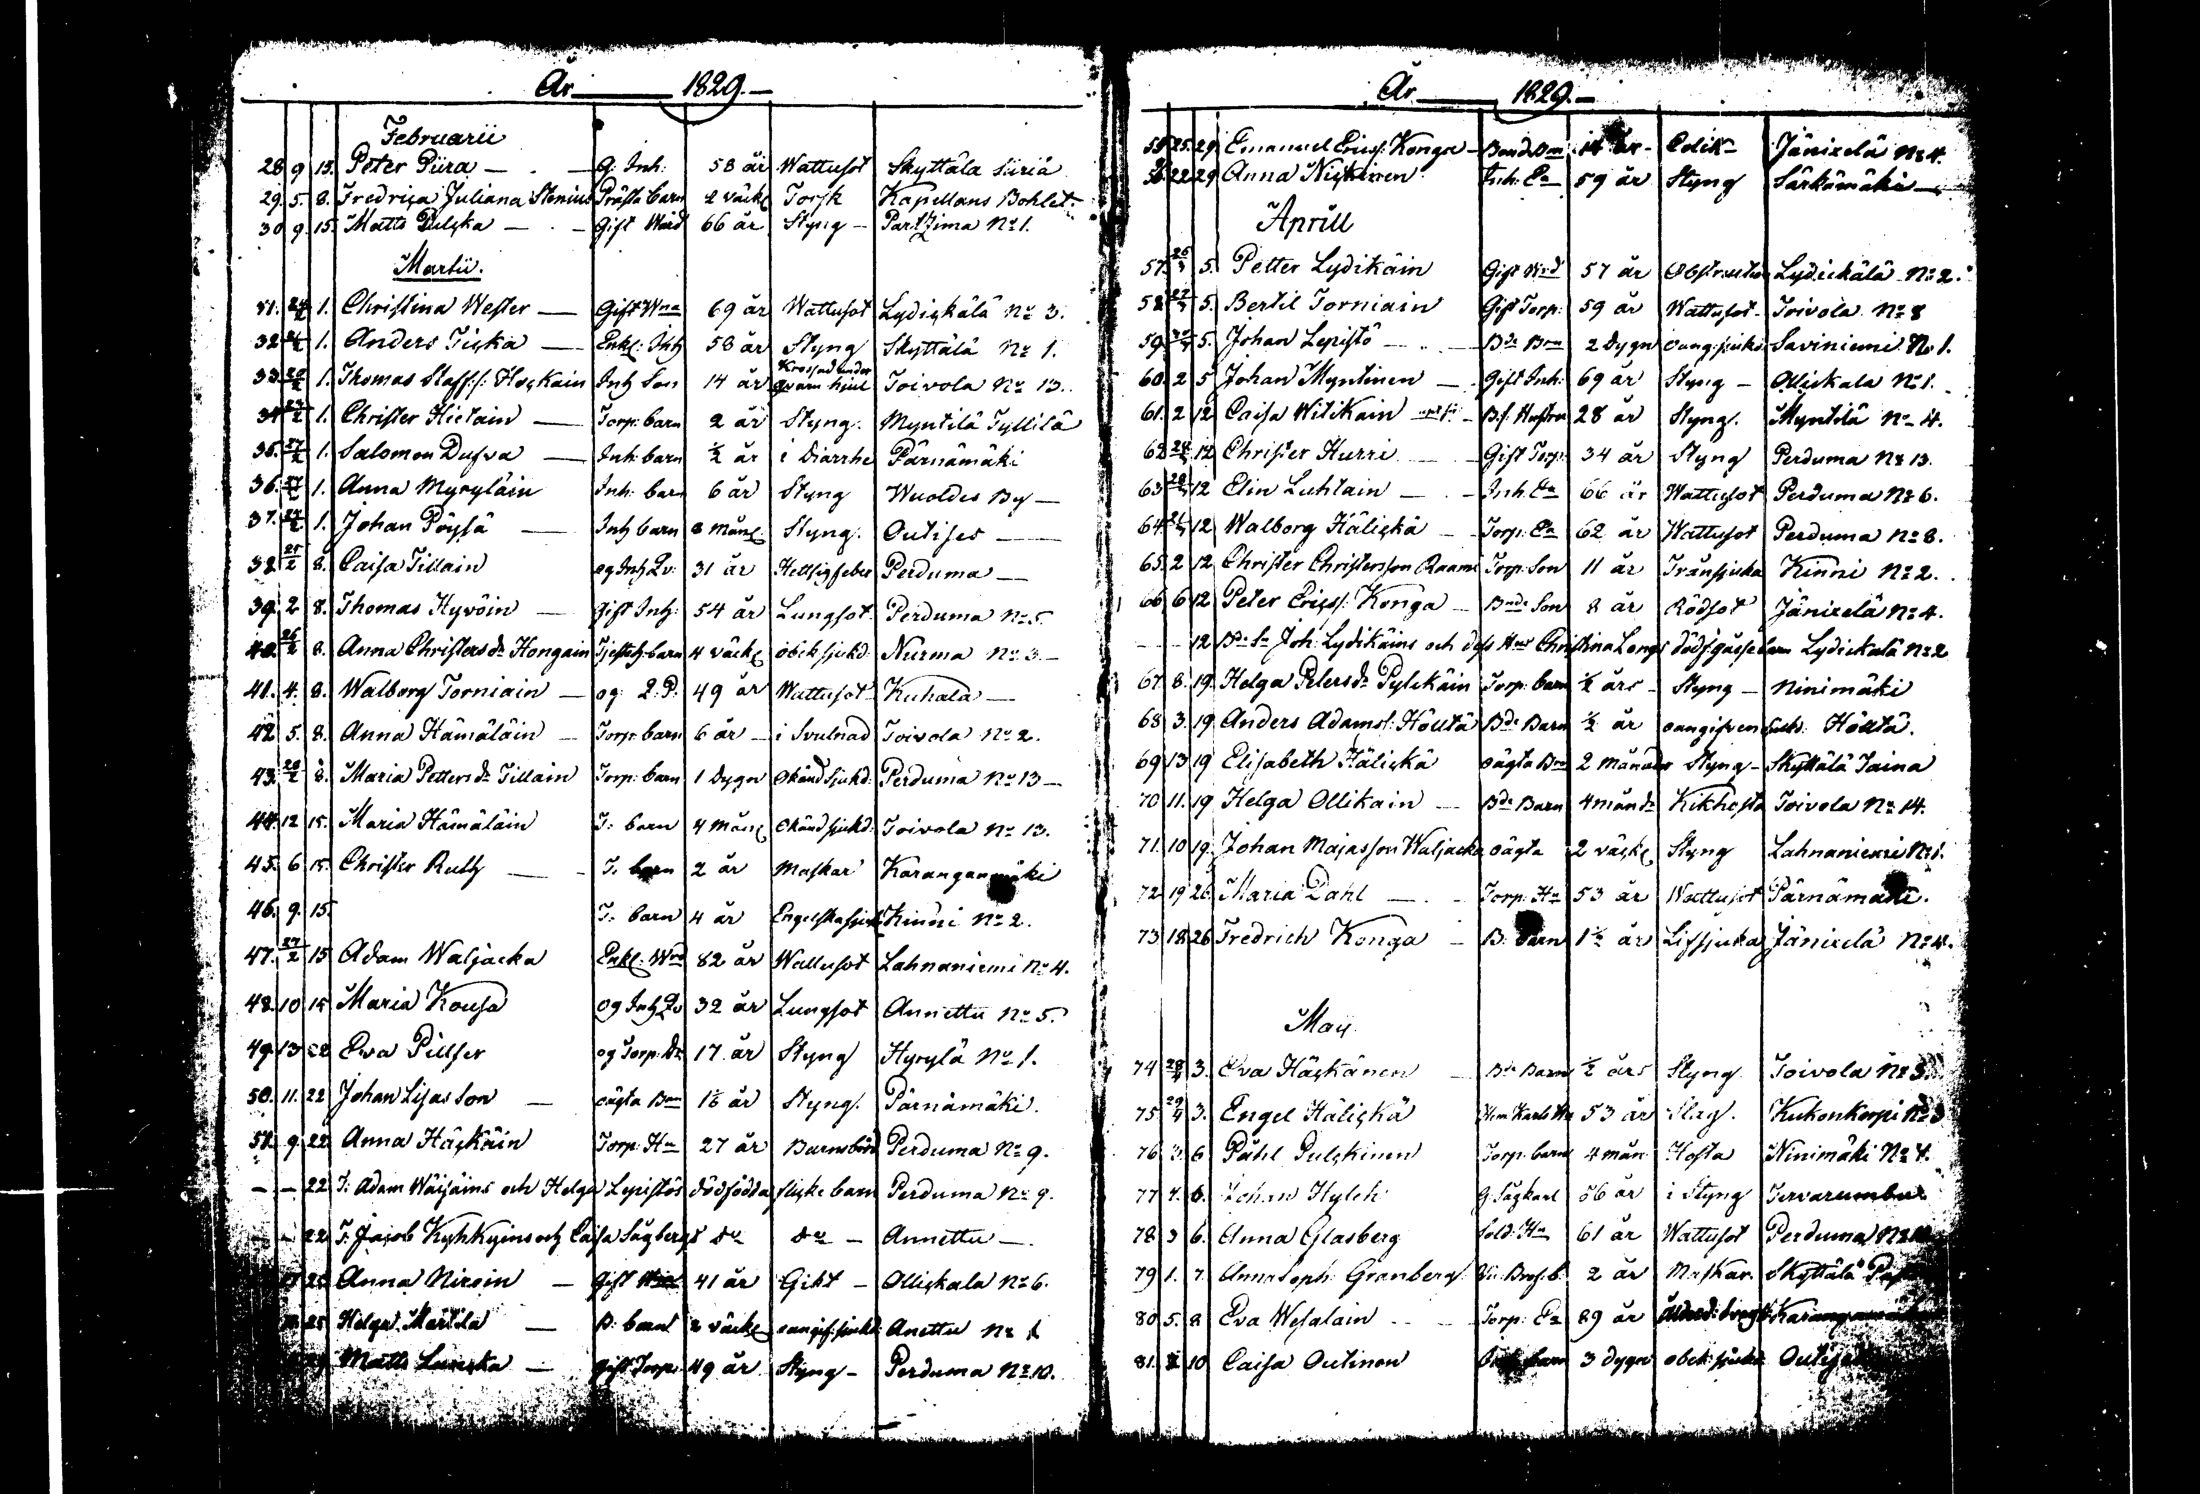 År 1829.
Februarii
28 9 15. Peter Piira G. Inh. 58 år Wattusot Skyttälä Siiriä
29. 5. 8. Fredrica Juliana Stenius Prästa barn 2 väck. Torsk Kapellans Bohlet
30 9. 15. Matts Pulcka Gift Wärd 66 år Styng Partzima No 1.
Martii.
31. 24/2 1. Christina Wester Gift Wna 69 år Wattusot Lydickälä No 3.
32 1. Anders Ticka Enkl. Inh 58 år Styng Skyttälä No 1.
33. 1. Thomas Staffs: Hockain Inh Son 14 år Krossad under qvarn hiul Toivola No 13.
34 1. Christer Hietain Torp. barn 2 år Styng. Myntilä Tyllilä
35. 27/2 1. Salomon Dufva Inh. barn ½ år i Diarrhe Pärnämäki
36. 27/2 1. Anna Myryläin Inh. barn 6 år Styng Wuoldes By
37. 27/2 1. Johan Pöysä Inh barn 8 Mån. Styng. Outiser
38 8. Caisa Tillain og Inh 31 år Hettsigfeber Perduma
39. 2 8. Thomas Hyvöin Gift Inh. 54 år Lungsot Perduma No 5
40. 26/2 8. Anna Christersdr Hongain barn 4 väck obek sjukd. Nurma No 3.
41. 4. 8. Walborg Torniain og. Q. P. 49 år Wattusot Kuhala
42 5. 8. Anna Hämäläin Torp. barn 6 år i Svulnad Toivola No 2.
43. 28/2 8. Maria Pettersdr Tillain Torp. barn 1 dygn Okändsjukd. Perduma No 13
44. 12 15. Maria Hämäläin T. barn 4 mån Okänd sjukd. Toivola No 13.
45. 6 15. Christer Ruth T. barn 2 år Maskar Karanganmäki
46. 9. 15. T. barn 4 år Engelskasjuk Kinni No 2.
47. 27/2 15 Adam Waljacka Enkl. Wrd 82 år Wattusot Lahnaniemi No 4.
48. 10 15 Maria Kousa og Inh 32 år Lungsot Annettu No 5.
49. 13 22 Eva Pillser og Torp. Dr 17 år Styng Hyrylä No 1.
50. 11. 22 Johan Lisas Son oägta Bn år Styng. Pärnämäki.
51. 9. 22 Anna Häckäin Torp. Ha 27 år Barnsbörd Perduma No 9.
22 T. Adam Wäisäins och Helga Lepistös dödfödda flicke barn Perduma No 9.
22 T. Jacob Kyhkyins och Caisa Sågbergs do do Annettu
Anna Niroin Gift 41 år Gikt Ollickala No 6.
Helga Märtilä B. barn 2 väck oangif. sjukd. Anettu No 1
Matts Gift Torp. 49 år Styng Perduma No 10.
År 1829.
55 25. 29. Emanuel Erics: Konga Bonde Son 14 år Colik Jänixelä No 4.
56. 22 29 Anna Nickinen Inh. Ea 59 år Styng Särkämäki
Aprill
57. 5. Petter Lydikäin Gift Wrd 57 år Obstruction Lydickälä No 2.
58 5. Bertil Torniain Gift Torp. 59 år Wattusot Toivola No 8
59. 5. Johan Lepistö Bde Bn 2 Dygn oang. sjukd. Saviniemi No 1.
60. 2 5 Johan Myntinen Gift Inh. 69 år Styng Ollickala No 1.
61. 2 12 Caisa Witikain B.s. Hustru 28 år Styng. Myntilä No 4.
62 12 Christer Hurri Gift Torp. 34 år Styng Perduma No 13.
63 12 Elin Luhtain Inh. Ea 66 år Wattusot Perduma No 6.
64 12 Walborg Hälickä Torp. Ea 62 år Wattusot Perduma No 8.
65. 2 12 Christer Christersson Raami Torp. Son 11 år Tränsjuka Kinni No 2.
66 6 12 Peter Erics: Konga Bnde Son 8 år Rödsot Jänixelä No 4.
12 Joh. Lydikäins och dess Hus Christina Longs dödf gåssebarn Lydickälä No 2
67 8. 19. Helga Petersdr Pylckäin Torp. barn ½ års Styng Ninimäki
68 3. 19 Anders Adams: Hölttä Bde Barn ½ år oangifven sukd. Hölttä.
69 13 19 Elisabeth Hälickä oägta Bn 2 månader Styng Skyttälä Taina
70 11. 19 Helga Ollikain Bde Barn 4 månd. Kikhosta Toivola No 14.
71. 10 19. Johan Majasson Waljacka oägta 2 väck. Styng Lahnaniemi No 1.
72 19 26 Maria Dahl Torp. Ha 53 år Wattusot Pärnämäki.
73 18 26 Fredrich Konga B. barn 1½ år Lifsjuka Jänixelä No 4.
May
74 28/4 3. Eva Häckänen Bde Barn ½ års Styng Toivola No 3.
75 29/4 3. Engel Hälickä 53 år Slag. Kukonkorpi No 3
76 3. 6 Påhl Pulckinen Torp. barn 4 mån Hosta Ninimäki No 4.
77 4. 6. Johan Hylck G. Sågkarl 56 år i Styng
78 3 6. Anna Glasberg Sold. Ha 61 år Wattusot Perduma
79 1. 7. Anna Soph: Granberg 2 år Maskar Skyttälä
80 5. 8 Eva Wesalain Torp. Ea 89 år
81. 10 Caisa Outinen barn 3 dygn obek. sjukd.